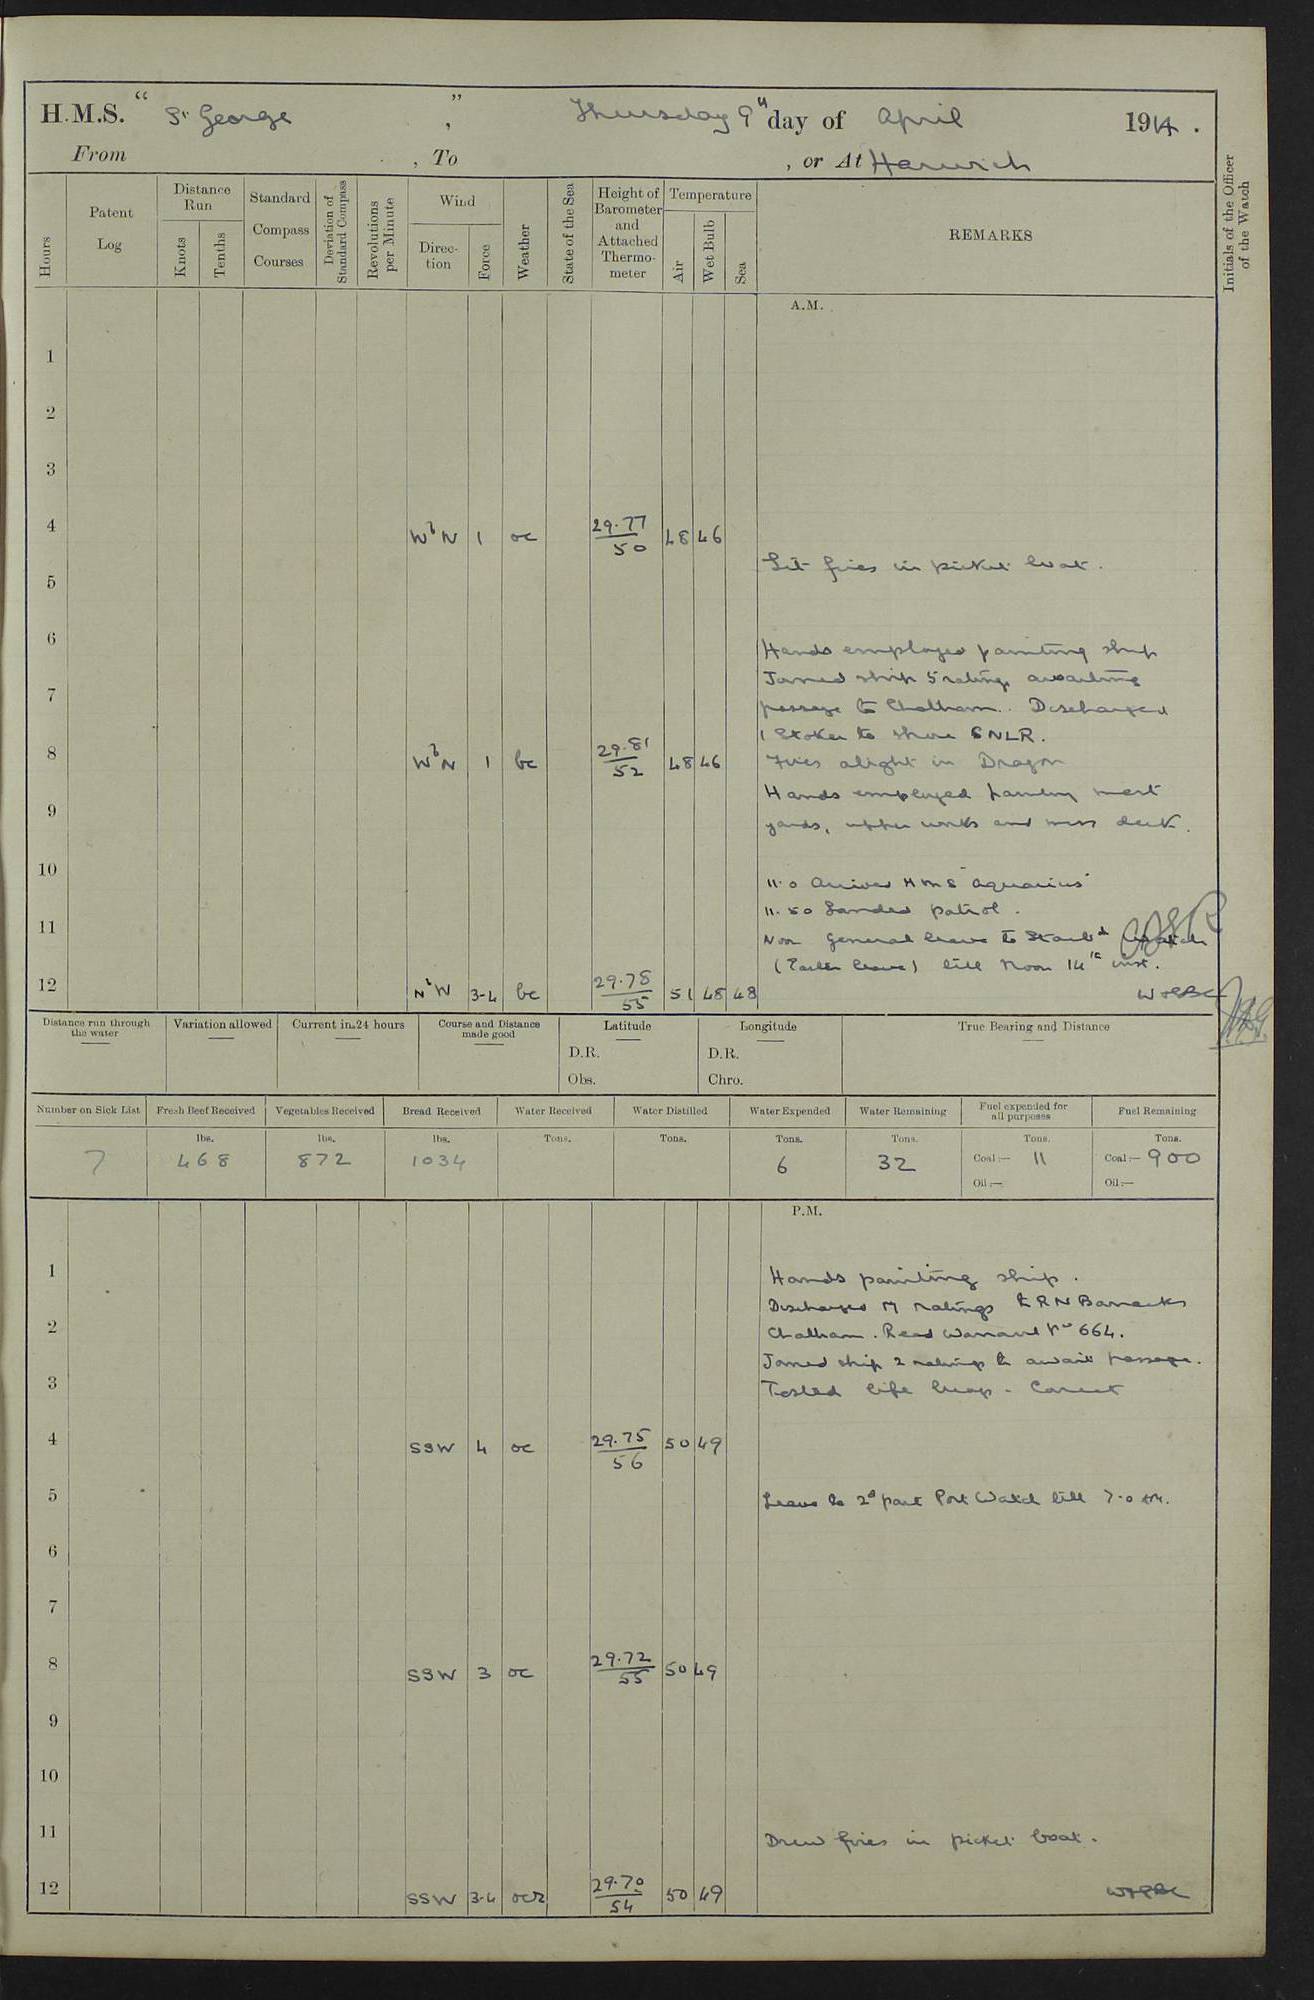 H.M.S. " St George " , Thursday 9th day of April 1914 .
From , To , or At Harwich
Hours
Patent Log
Distance Run
Knots
Tenths
Standard Compass Courses
Deviation of Standard Compass
Revolutions per Minute
Wind
Direction
Force
Weather
State of the Sea
Height of Barometer and Attached Thermometer
Temperature
Air
Wet Bulb
Sea
REMARKS
Initials of the Officer of the Watch
A.M.
1
2
3
4 WbN 1 oc 29.77/50 48 46
Lit fires in picket boat.
5
6
Hands employed painting ship
Joined ship 5 ratings awaiting
7
passage to Chatham. Discharged
1 Stoker to shore SNLR.
8 WbN 1 bc 29.81/52 48 46 Fires alight in Dragon
Hands employed painting mast
9
yards, upper works and mess deck.
10
11.0 Arrived HMS "Aquarius"
11.50 Landed patrol.
11
Noon General leave to Starbd Watch
(Easter leave) till Noon 14th inst.
12 NbW 3-4 bc 29.78/55 51 48 48
Distance run through the water
Variation allowed
Current in 24 hours
Course and Distance made good
Latitude
D.R.
Obs.
Longitude
D.R.
Chro.
True Bearing and Distance
Number on Sick List
Fresh Beef Received
Vegetables Received
Bread Received
Water Received
Water Distilled
Water Expended
Water Remaining
Fuel expended for all purposes
Fuel Remaining
lbs. lbs. lbs. Tons. Tons. Tons. Tons. Tons. Tons.
7 468 872 1034 6 32 Coal:— 11 Coal:— 900
Oil:— Oil:—
P.M.
1
Hands painting ship.
Discharged 17 ratings to RN Barracks
2
Chatham. Read Warrant No 664.
Joined ship 2 ratings to await passage.
3
Tested life buoys - Correct
4 SSW 4 oc 29.75/56 50 49
5
Leave to 2d part Port Watch till 7.0 AM.
6
7
8 SSW 3 oc 29.72/55 50 49
9
10
11
Drew fires in picket boat.
12 SSW 3-4 ocr 29.70/54 50 49